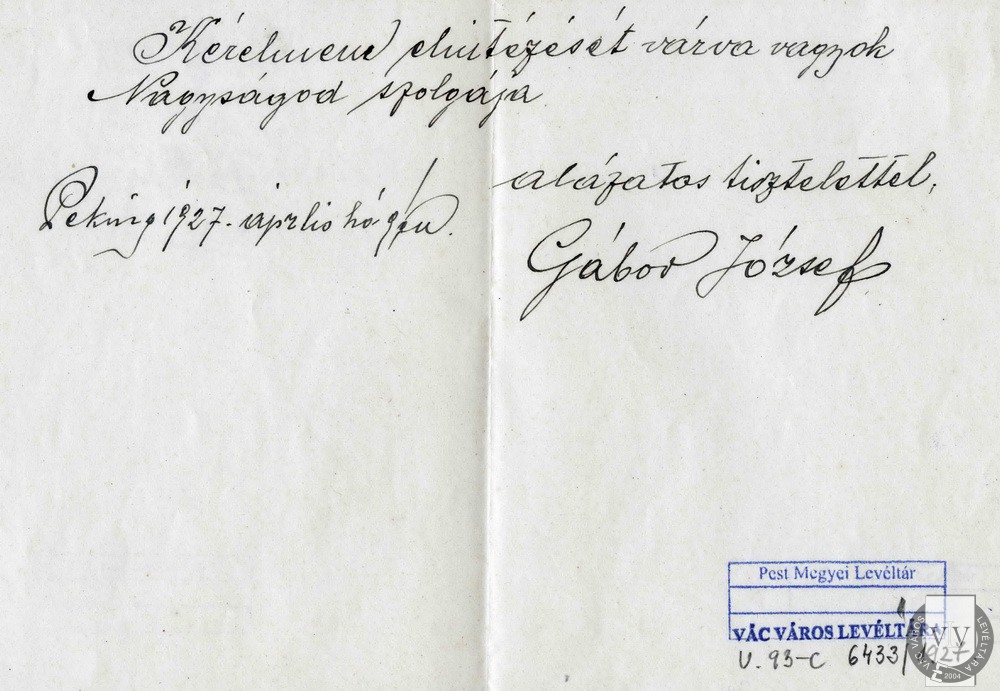 Kérelmem elintézését várva vagyok
Nagyságod szolgája
alázatos tisztelettel,
Peking 1927. április hó 9én.
Gábor József
Pest Megyei Levéltár
VÁC VÁROS LEVÉLTÁRA
V. 93-C 6433/1927
VÁC VÁROS LEVÉLTÁRA
VVL
2004